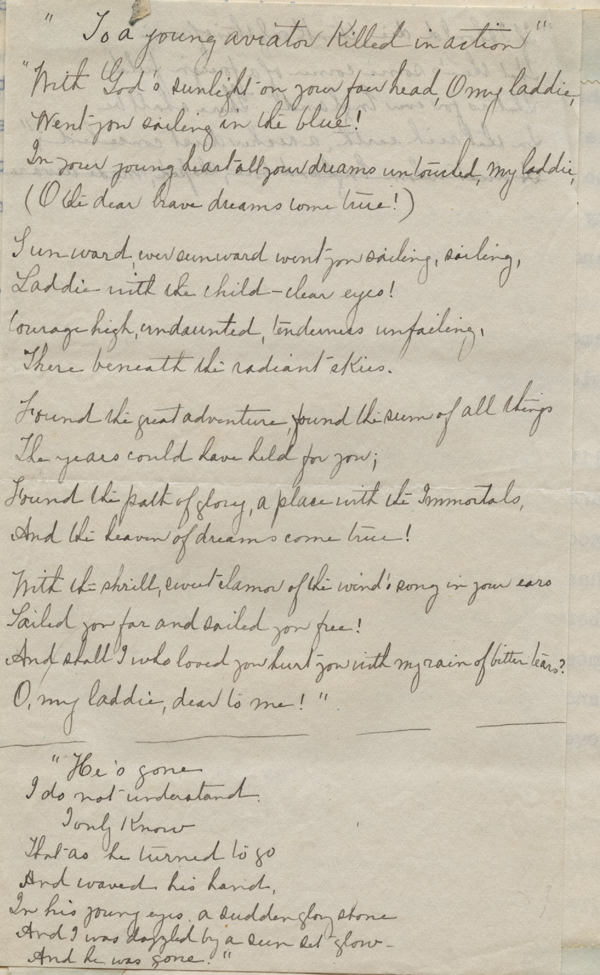 "To a young aviator Killed in action"
"With God's sunlight on your fair head, O my laddie,
Went you sailing in the blue!
In your young heart all your dreams untouched, my laddie,
(O the dear brave dreams come true!)
Sunward, ever sunward went you sailing, sailing,
Laddie with the child-clear eyes!
Courage high, undaunted, tenderness unfailing,
There beneath the radiant skies.
Found the great adventure, found the sum of all things
The years could have held for you;
Found the path of glory, a place with the Immortals,
And the heaven of dreams come true!
With the shrill, sweet clamor of the wind's song in your ears
Sailed you far and sailed you free!
And shall I who loved you hurt you with my rain of bitter tears?
O, my laddie, dear to me!"
"He's gone
I do not understand.
I only Know
That as he turned to go
And waved his hand,
In his young eyes a sudden glory shone
And I was dazzled by a sun set glow-
And he was gone."